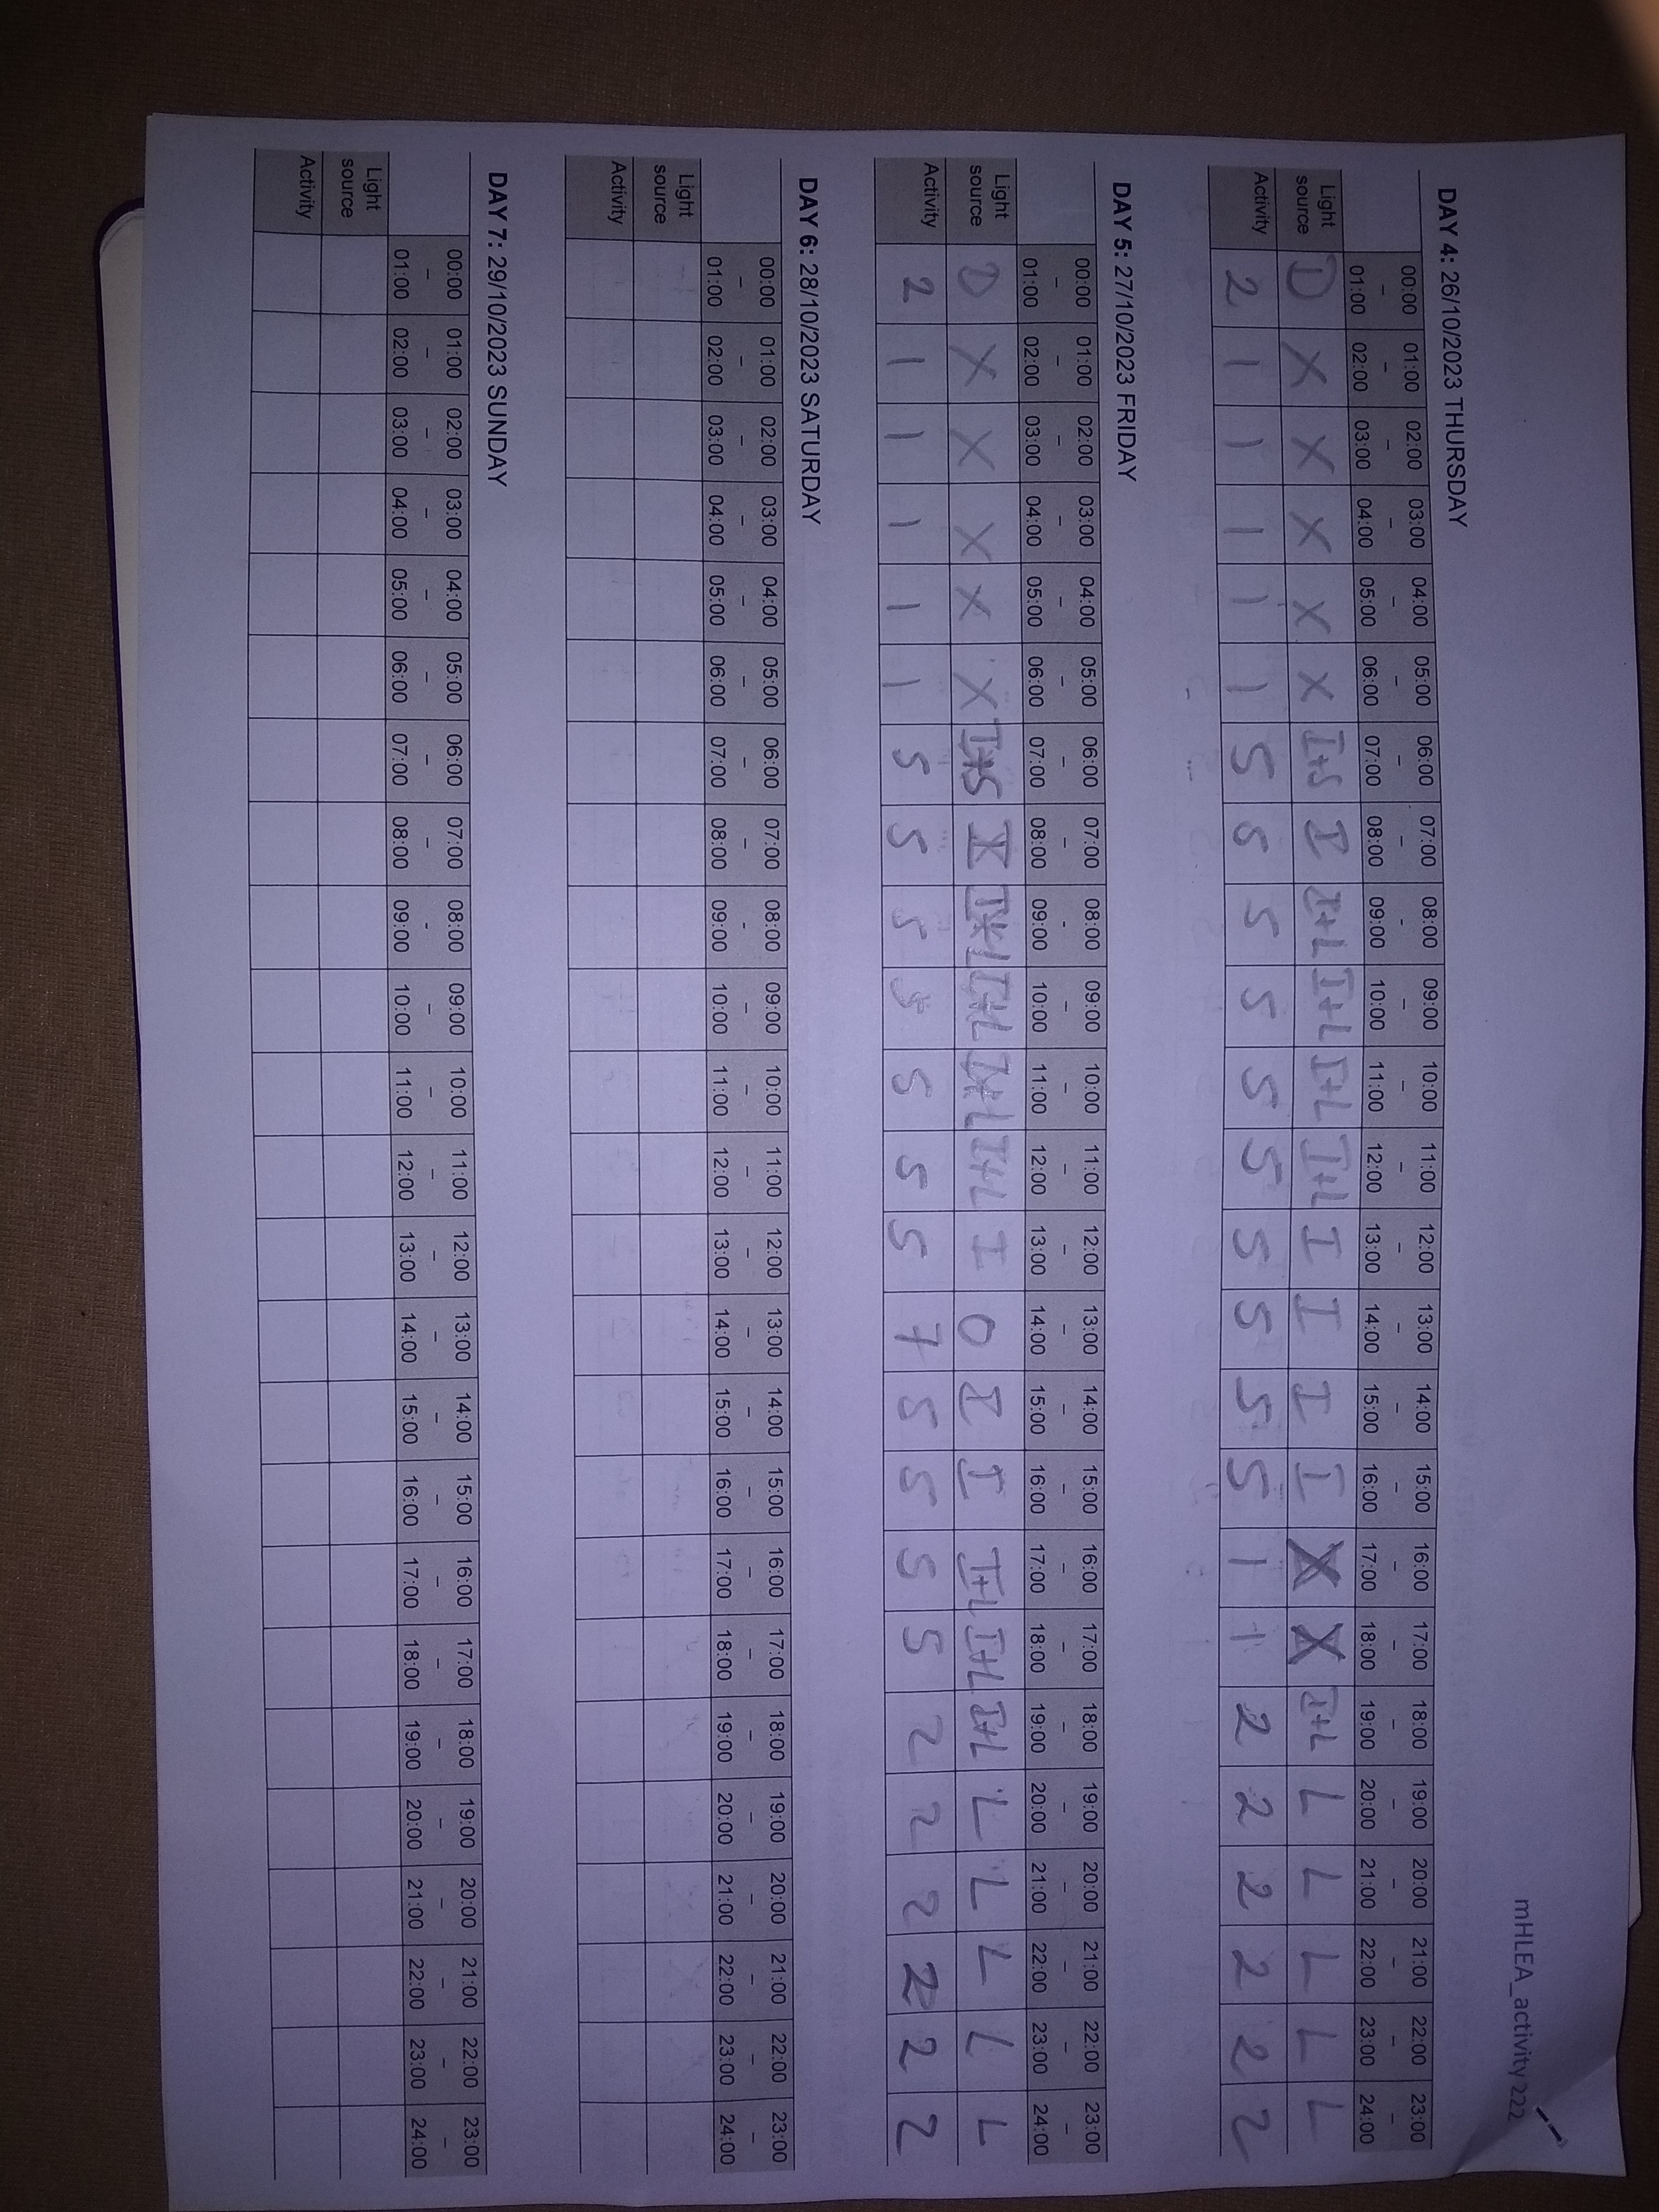 mHLEA_activity 222
DAY 4: 26/10/2023 THURSDAY
00:00 – 01:00 01:00 – 02:00 02:00 – 03:00 03:00 – 04:00 04:00 – 05:00 05:00 – 06:00 06:00 – 07:00 07:00 – 08:00 08:00 - 09:00 09:00 – 10:00 10:00 – 11:00 11:00 – 12:00 12:00 – 13:00 13:00 – 14:00 14:00 – 15:00 15:00 – 16:00 16:00 – 17:00 17:00 – 18:00 18:00 – 19:00 19:00 – 20:00 20:00 – 21:00 21:00 – 22:00 22:00 – 23:00 23:00 – 24:00
Light source D X X X X X I+S I I+L I+L I+L I+L I I I I X X I+L L L L L L
Activity 2 1 1 1 1 1 5 5 5 5 5 5 5 5 5 5 1 1 2 2 2 2 2 2
DAY 5: 27/10/2023 FRIDAY
00:00 – 01:00 01:00 – 02:00 02:00 – 03:00 03:00 – 04:00 04:00 – 05:00 05:00 – 06:00 06:00 – 07:00 07:00 – 08:00 08:00 - 09:00 09:00 – 10:00 10:00 – 11:00 11:00 – 12:00 12:00 – 13:00 13:00 – 14:00 14:00 – 15:00 15:00 – 16:00 16:00 – 17:00 17:00 – 18:00 18:00 – 19:00 19:00 – 20:00 20:00 – 21:00 21:00 – 22:00 22:00 – 23:00 23:00 – 24:00
Light source D X X X X X I+S I I+L I+L I+L I+L I O I I I+L I+L I+L L L L L L
Activity 2 1 1 1 1 1 5 5 5 5 5 5 5 7 5 5 5 5 2 2 2 2 2 2
DAY 6: 28/10/2023 SATURDAY
00:00 – 01:00 01:00 – 02:00 02:00 – 03:00 03:00 – 04:00 04:00 – 05:00 05:00 – 06:00 06:00 – 07:00 07:00 – 08:00 08:00 - 09:00 09:00 – 10:00 10:00 – 11:00 11:00 – 12:00 12:00 – 13:00 13:00 – 14:00 14:00 – 15:00 15:00 – 16:00 16:00 – 17:00 17:00 – 18:00 18:00 – 19:00 19:00 – 20:00 20:00 – 21:00 21:00 – 22:00 22:00 – 23:00 23:00 – 24:00
Light source
Activity
DAY 7: 29/10/2023 SUNDAY
00:00 – 01:00 01:00 – 02:00 02:00 – 03:00 03:00 – 04:00 04:00 – 05:00 05:00 – 06:00 06:00 – 07:00 07:00 – 08:00 08:00 - 09:00 09:00 – 10:00 10:00 – 11:00 11:00 – 12:00 12:00 – 13:00 13:00 – 14:00 14:00 – 15:00 15:00 – 16:00 16:00 – 17:00 17:00 – 18:00 18:00 – 19:00 19:00 – 20:00 20:00 – 21:00 21:00 – 22:00 22:00 – 23:00 23:00 – 24:00
Light source
Activity